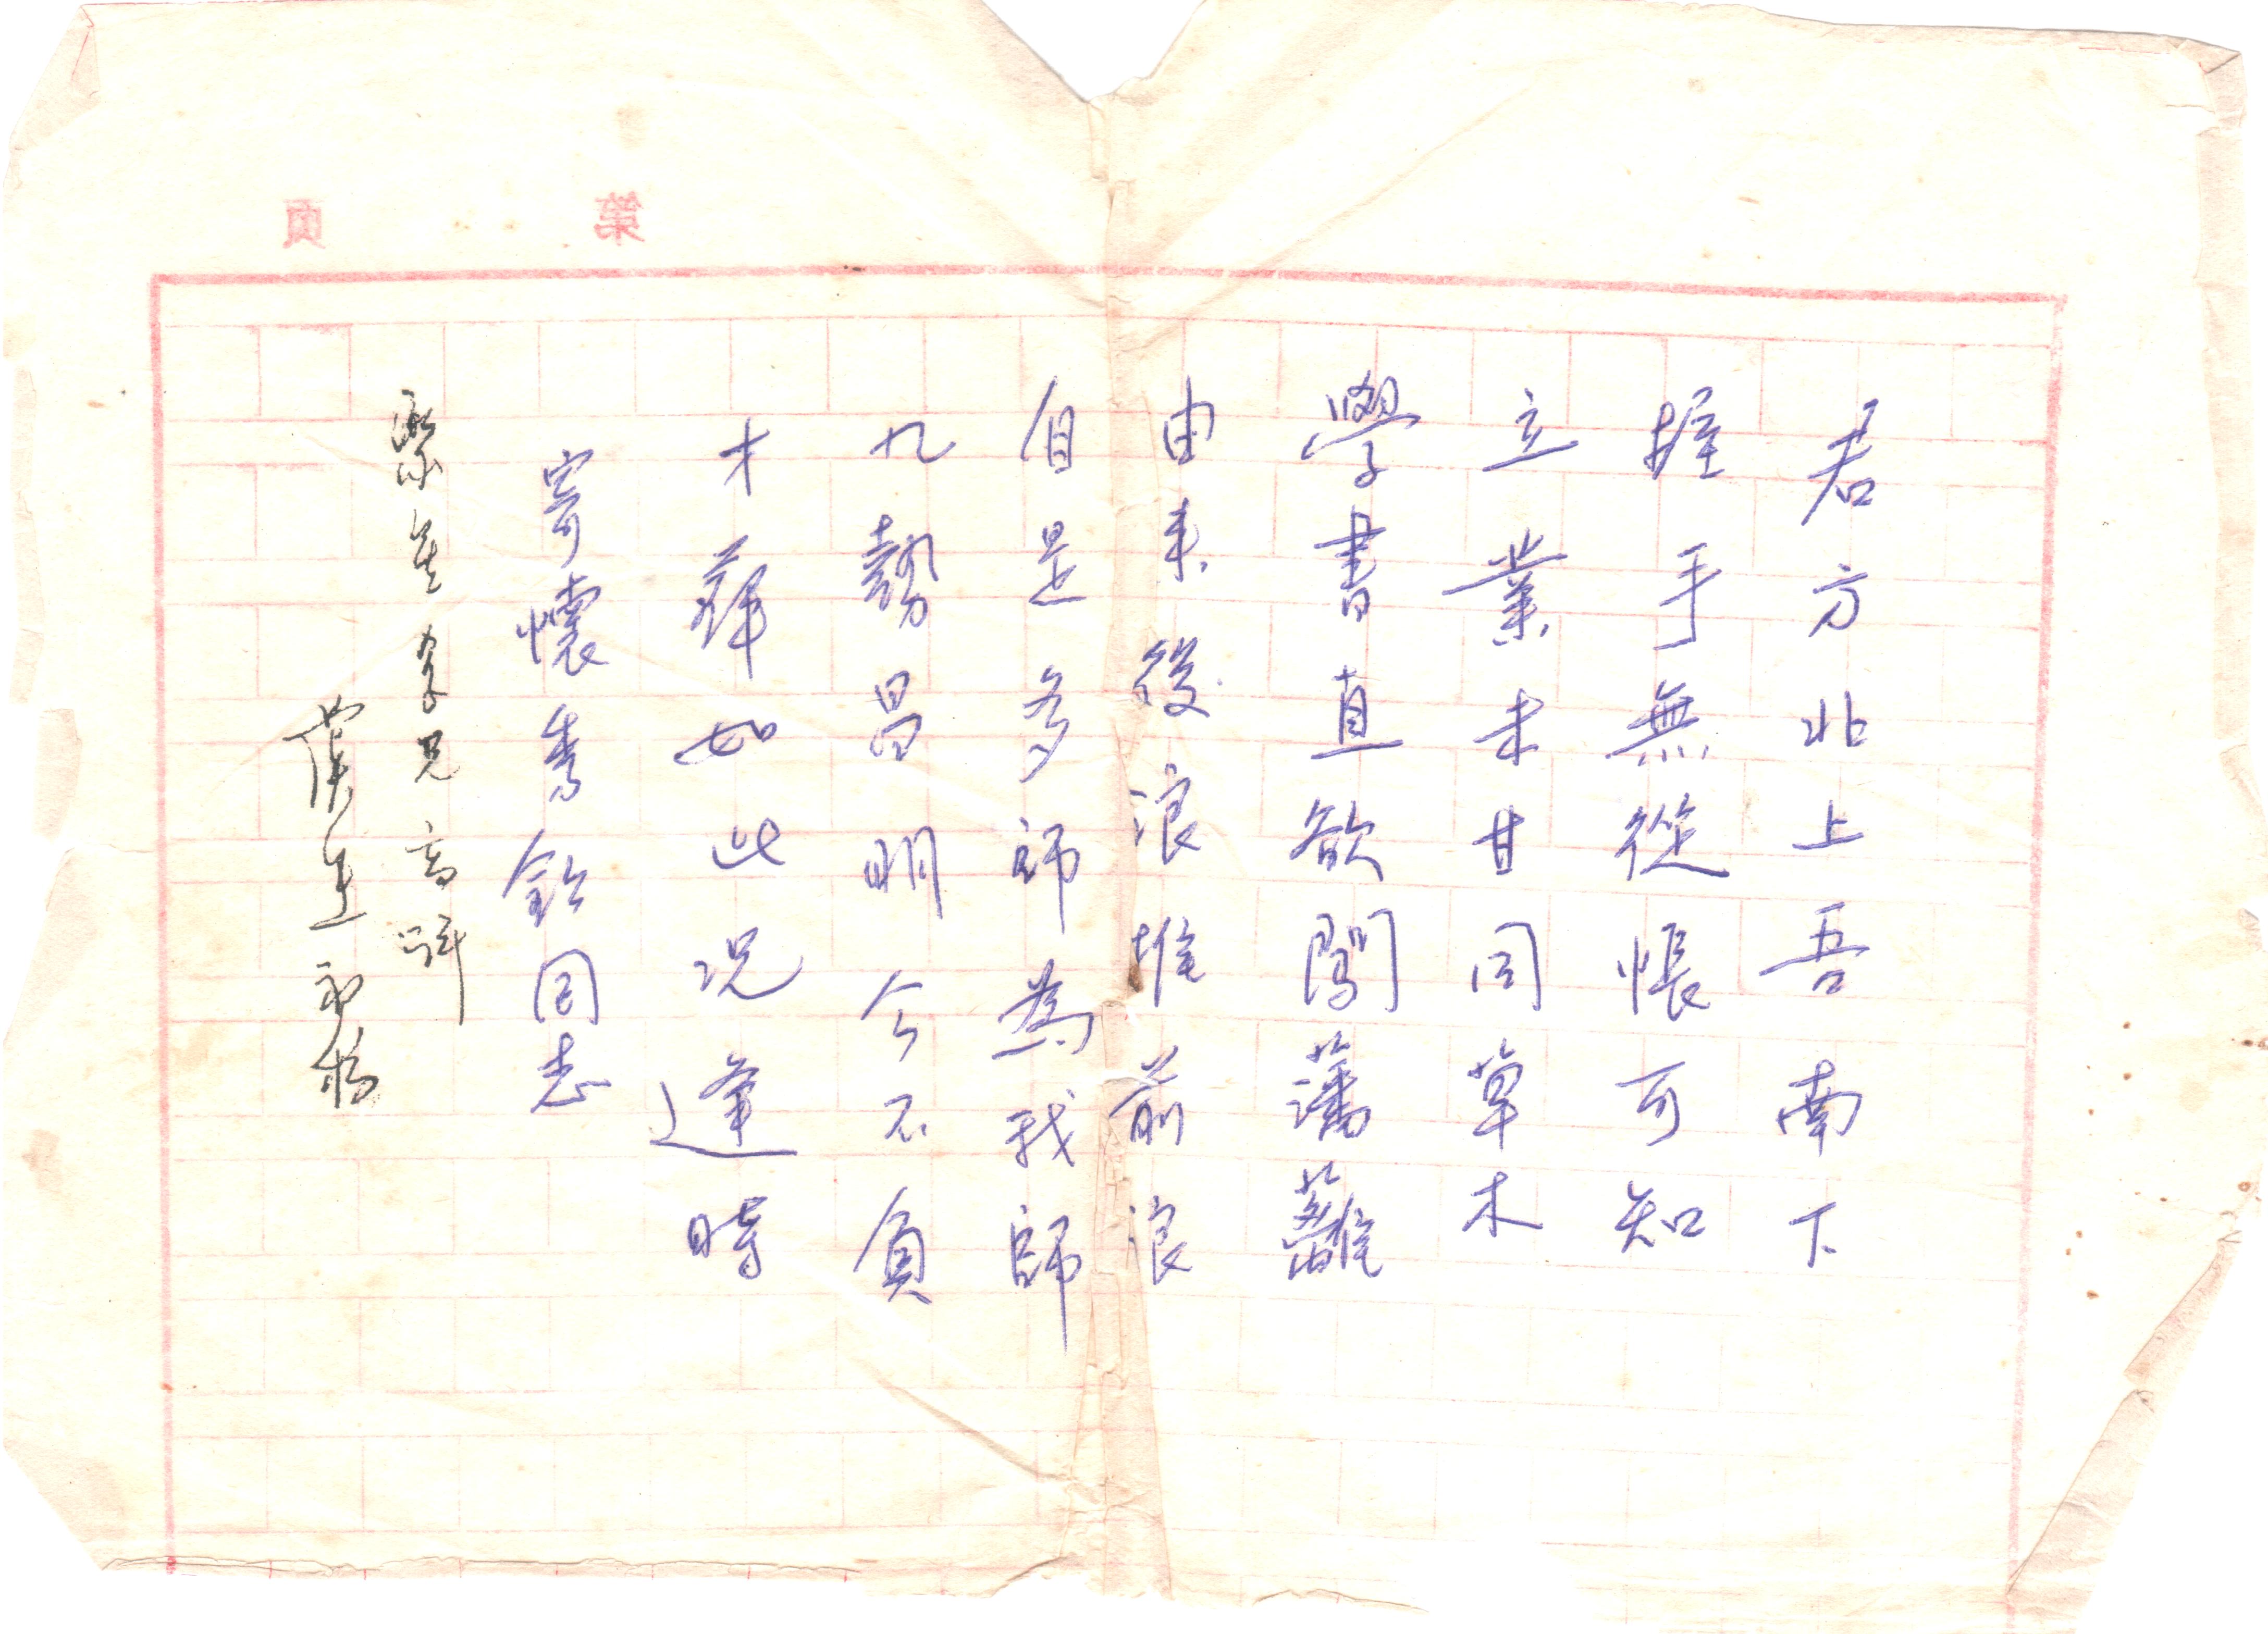 第 頁
君方北上吾南下
握手無從悵可知
立業未甘同草木
學書直欲闖藩籬
由来後浪推前浪
自是多師為我師
九勢昌明今不負
才華如此况逢時
寄懷同志
學兄高評